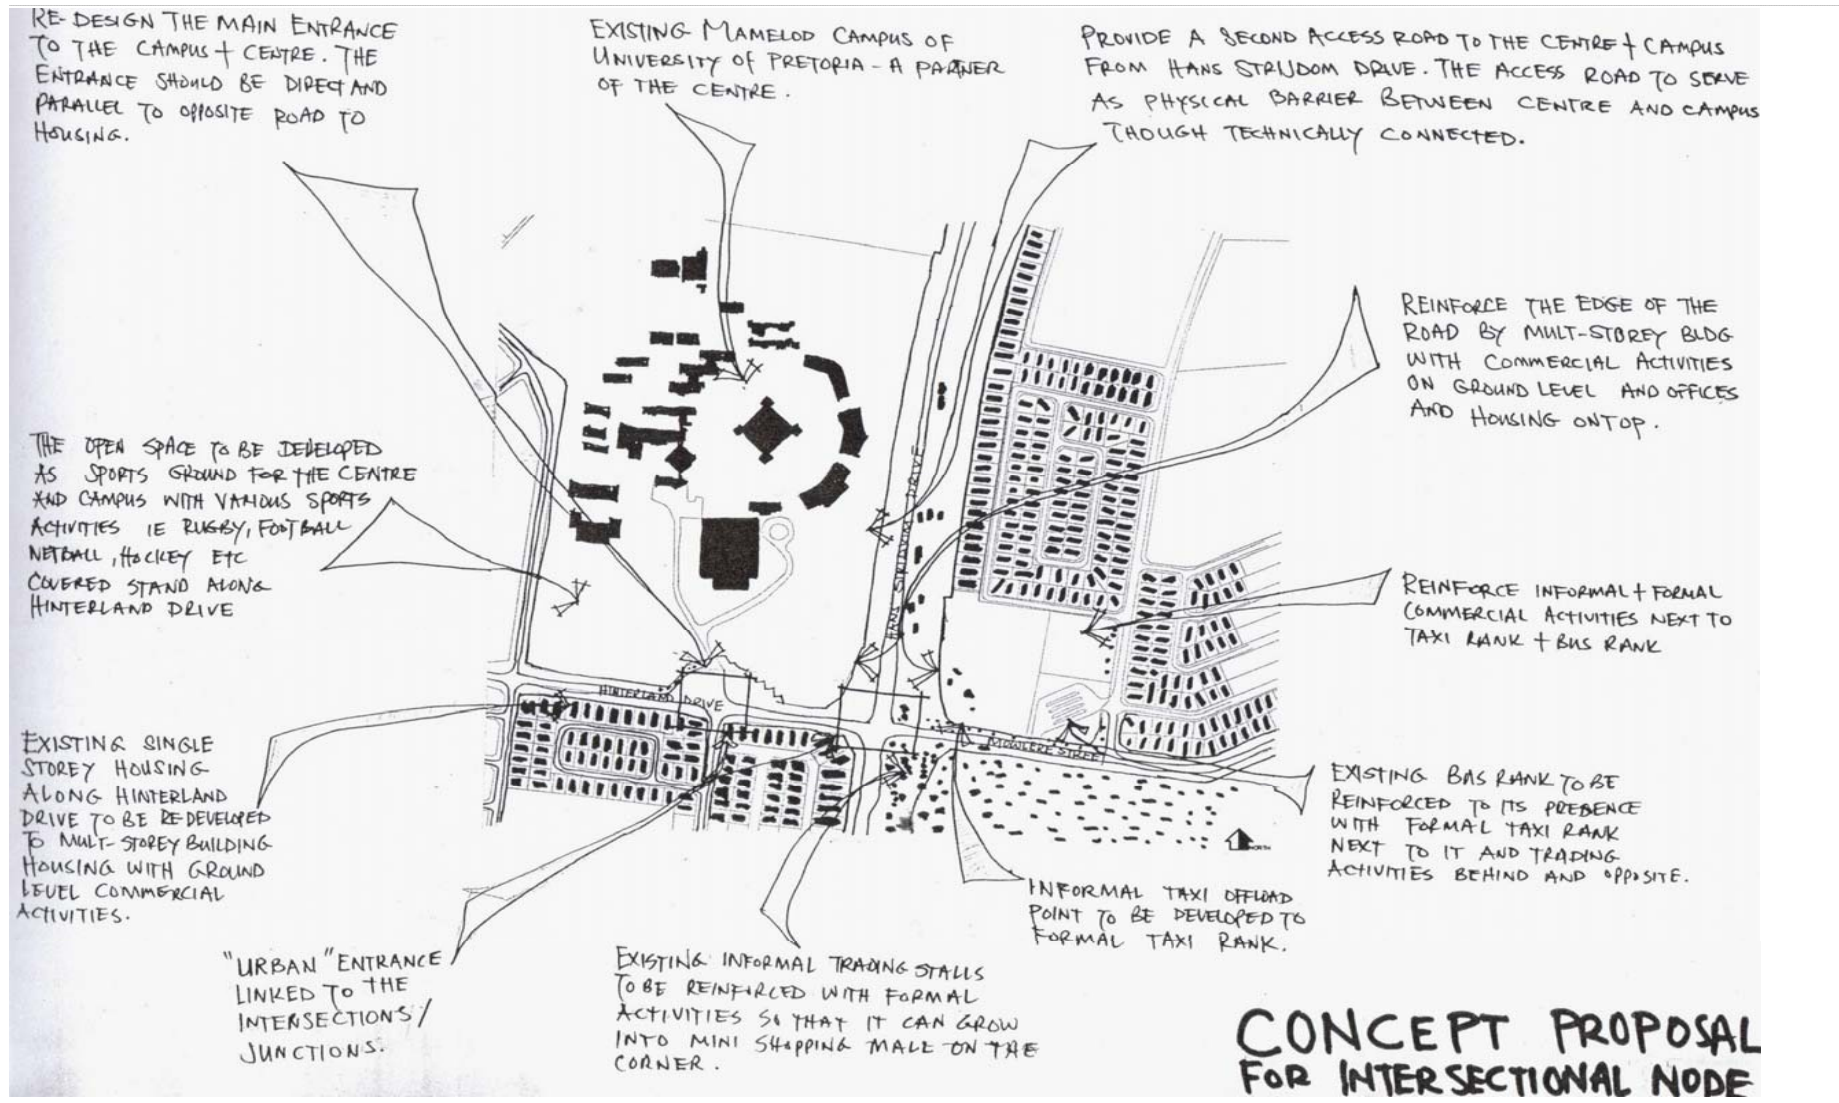 RE-DESIGN THE MAIN ENTRANCE
TO THE CAMPUS + CENTRE. THE
ENTRANCE SHOULD BE DIRECT AND
PARALLEL TO OPPOSITE ROAD TO
HOUSING.
EXISTING MAMELOD CAMPUS OF
UNIVERSITY OF PRETORIA - A PARTNER
OF THE CENTRE.
PROVIDE A SECOND ACCESS ROAD TO THE CENTRE + CAMPUS
FROM HANS STRIJDOM DRIVE. THE ACCESS ROAD TO SERVE
AS PHYSICAL BARRIER BETWEEN CENTRE AND CAMPUS
THOUGH TECHNICALLY CONNECTED.
REINFORCE THE EDGE OF THE
ROAD BY MULT-STOREY BLDG
WITH COMMERCIAL ACTIVITIES
ON GROUND LEVEL AND OFFICES
AND HOUSING ONTOP.
THE OPEN SPACE TO BE DEVELOPED
AS SPORTS GROUND FOR THE CENTRE
AND CAMPUS WITH VARIOUS SPORTS
ACTIVITIES IE RUGBY, FOOTBALL
NETBALL, HOCKEY ETC
COVERED STAND ALONG
HINTERLAND DRIVE
HANS STRIJDOM DRIVE
REINFORCE INFORMAL + FORMAL
COMMERCIAL ACTIVITIES NEXT TO
TAXI RANK + BUS RANK
HINTERLAND DRIVE
MOWLERE STREET
EXISTING SINGLE
STOREY HOUSING
ALONG HINTERLAND
DRIVE TO BE REDEVELOPED
TO MULT-STOREY BUILDING
HOUSING WITH GROUND
LEVEL COMMERCIAL
ACTIVITIES.
EXISTING BUS RANK TO BE
REINFORCED TO ITS PRESENCE
WITH FORMAL TAXI RANK
NEXT TO IT AND TRADING
ACTIVITIES BEHIND AND OPPOSITE.
NORTH
INFORMAL TAXI OFFLOAD
POINT TO BE DEVELOPED TO
FORMAL TAXI RANK.
"URBAN" ENTRANCE
LINKED TO THE
INTERSECTIONS/
JUNCTIONS.
EXISTING INFORMAL TRADING STALLS
TO BE REINFORCED WITH FORMAL
ACTIVITIES SO THAT IT CAN GROW
INTO MINI SHOPPING MALL ON THE
CORNER.
CONCEPT PROPOSAL
FOR INTERSECTIONAL NODE